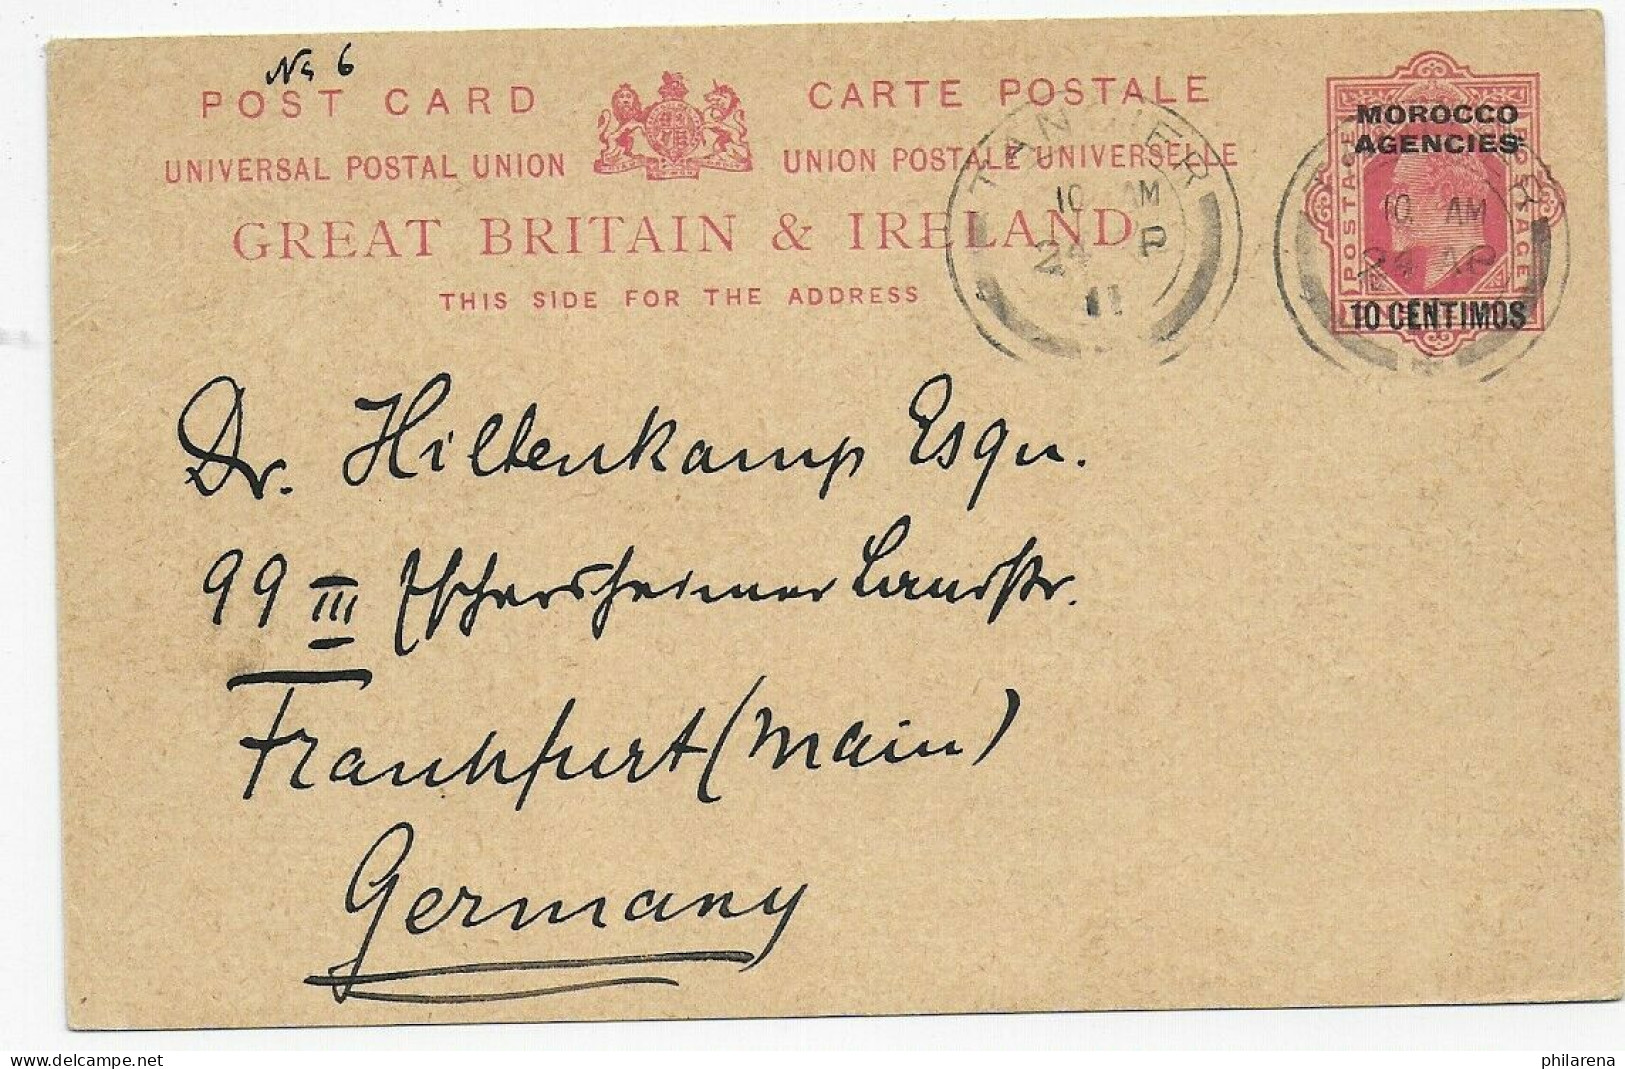 No 6
POST CARD CARTE POSTALE
UNIVERSAL POSTAL UNION UNION POSTALE UNIVERSELLE
GREAT BRITAIN & IRELAND
THIS SIDE FOR THE ADDRESS
MOROCCO
AGENCIES
POSTAGE POSTAGE
10 CENTIMOS
TANGIER
10 AM
24 AP
11
10 AM
24 AP
Dr. Hiltenkamp Esqu.
99 III Eschersheimer Landstr.
Frankfurt (Main)
Germany
philarena